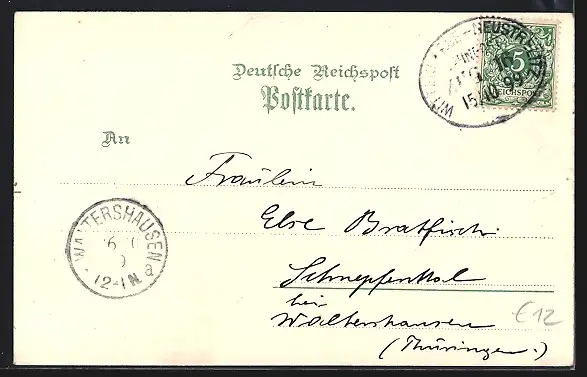 Deutsche Reichspost
Postkarte.
An
Fräulein
Else Bratfisch.
Schnepfenthal
bei
Waltershausen
(Thüringen.)
WALTERSHAUSEN
a
12-1N
-NEUSTRELITZ
15.10.99
5
REICHSPOST
€12